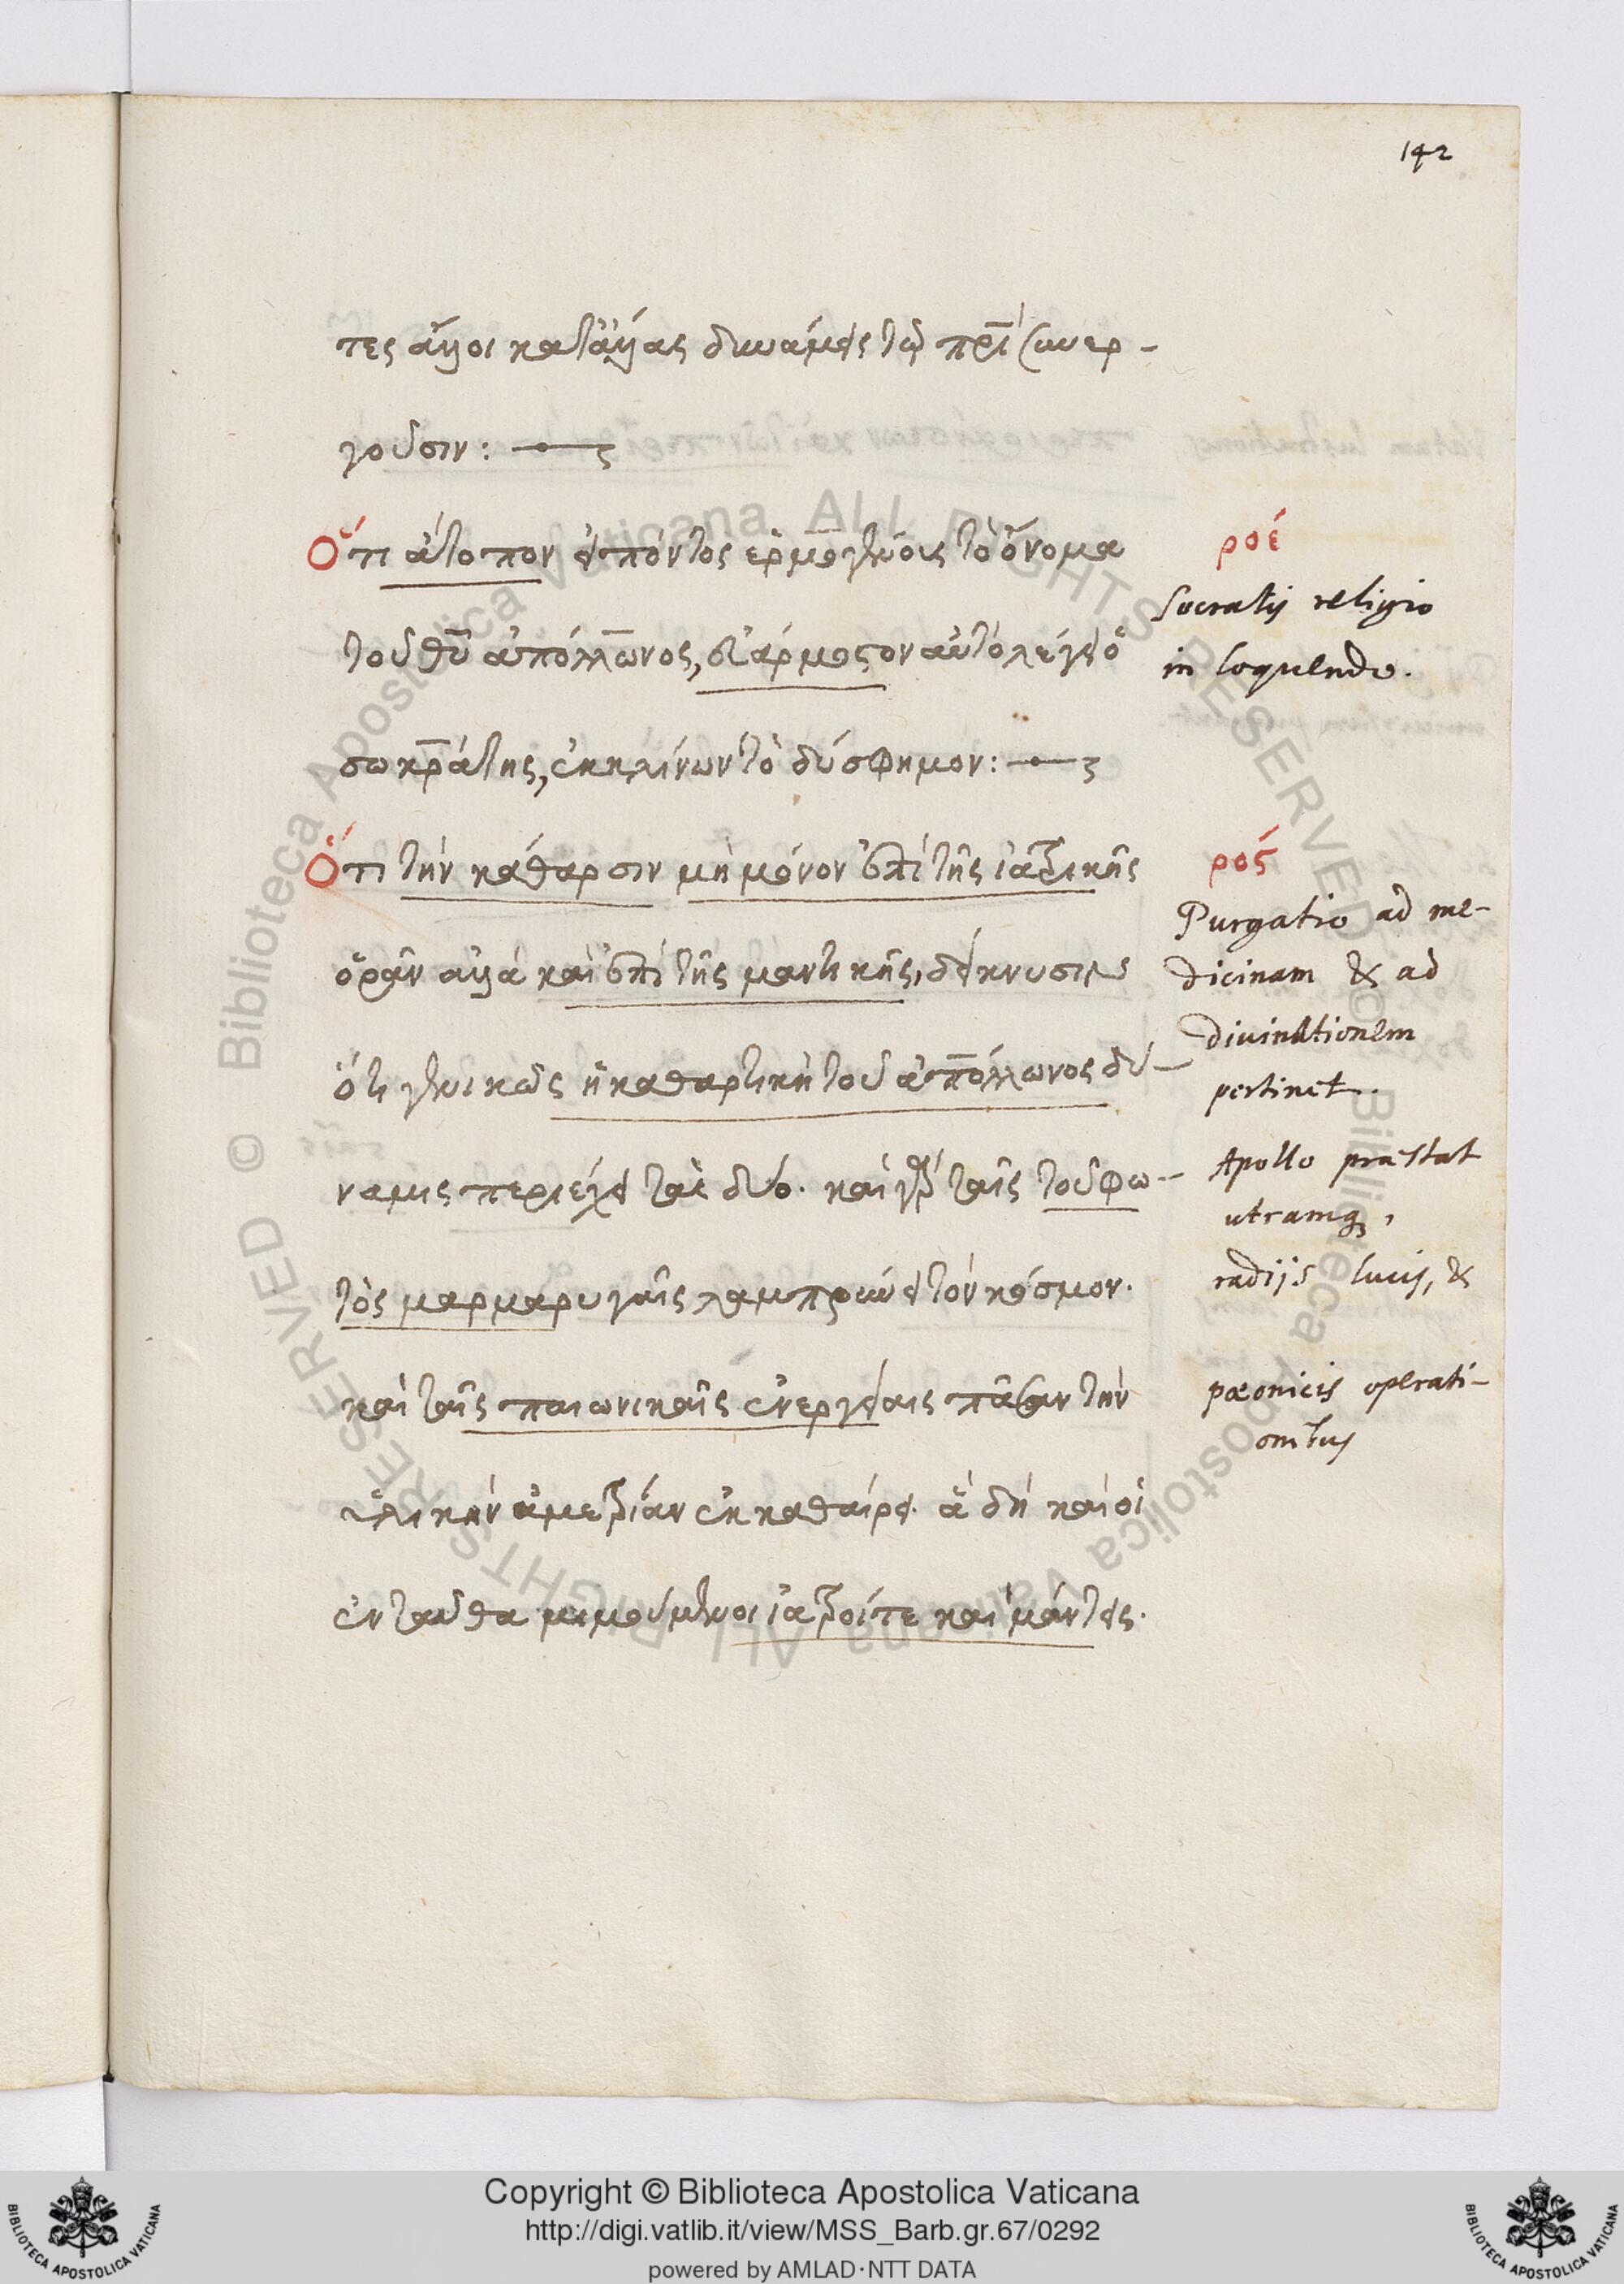 142
τες ἄλλοι κατ' ἄλλας δυνάμεις τῷ πρὶ συνερ-
γοῦσιν:
Ὅτι ἄτοπον εἰπόντος ἑρμογένους τὸ ὄνομα
τοῦ θυ ἀπόλλωνος, εὐάρμοστον αὐτὸ λέγει ὁ
σωκράτης, ἐκκλίνων τὸ δύσφημον:
Ὅτι τὴν κάθαρσιν μὴ μόνον ἐπὶ τῆς ἰατρικῆς
ὁρᾶν ἀλλὰ καὶ ἐπὶ τῆς μαντικῆς, δείκνυσιν
ὅτι γενικῶς ἡ καθαρτικὴ τοῦ ἀπόλλωνος δύ-
ναμις περιέχει τὰς δύο. καὶ γὰρ ταῖς τοῦ φω-
τὸς μαρμαρυγαῖς λαμπρύνει τὸν κόσμον.
καὶ ταῖς παιωνικαῖς ἐνεργείαις πᾶσαν τὴν
ὑλικὴν ἀμετρίαν ἐκκαθαίρει. ἃ δὴ καὶ οἱ
ἐνταῦθα μιμούμενοι ἰατροί τε καὶ μάντεις.
ροέ
Socratis religio
in loquendo.
ρος
Purgatio ad me-
dicinam & ad
divinationem
pertinet.
Apollo præstat
utramq,
radijs lucis, &
pæonicis operati-
onibus
Copyright © Biblioteca Apostolica Vaticana
http://digi.vatlib.it/view/MSS_Barb.gr.67/0292
powered by AMLAD·NTT DATA
BIBLIOTECA APOSTOLICA VATICANA
BIBLIOTECA APOSTOLICA VATICANA
Biblioteca Apostolica Vaticana ALL RIGHTS RESERVED ©
Biblioteca Apostolica Vaticana ALL RIGHTS RESERVED ©